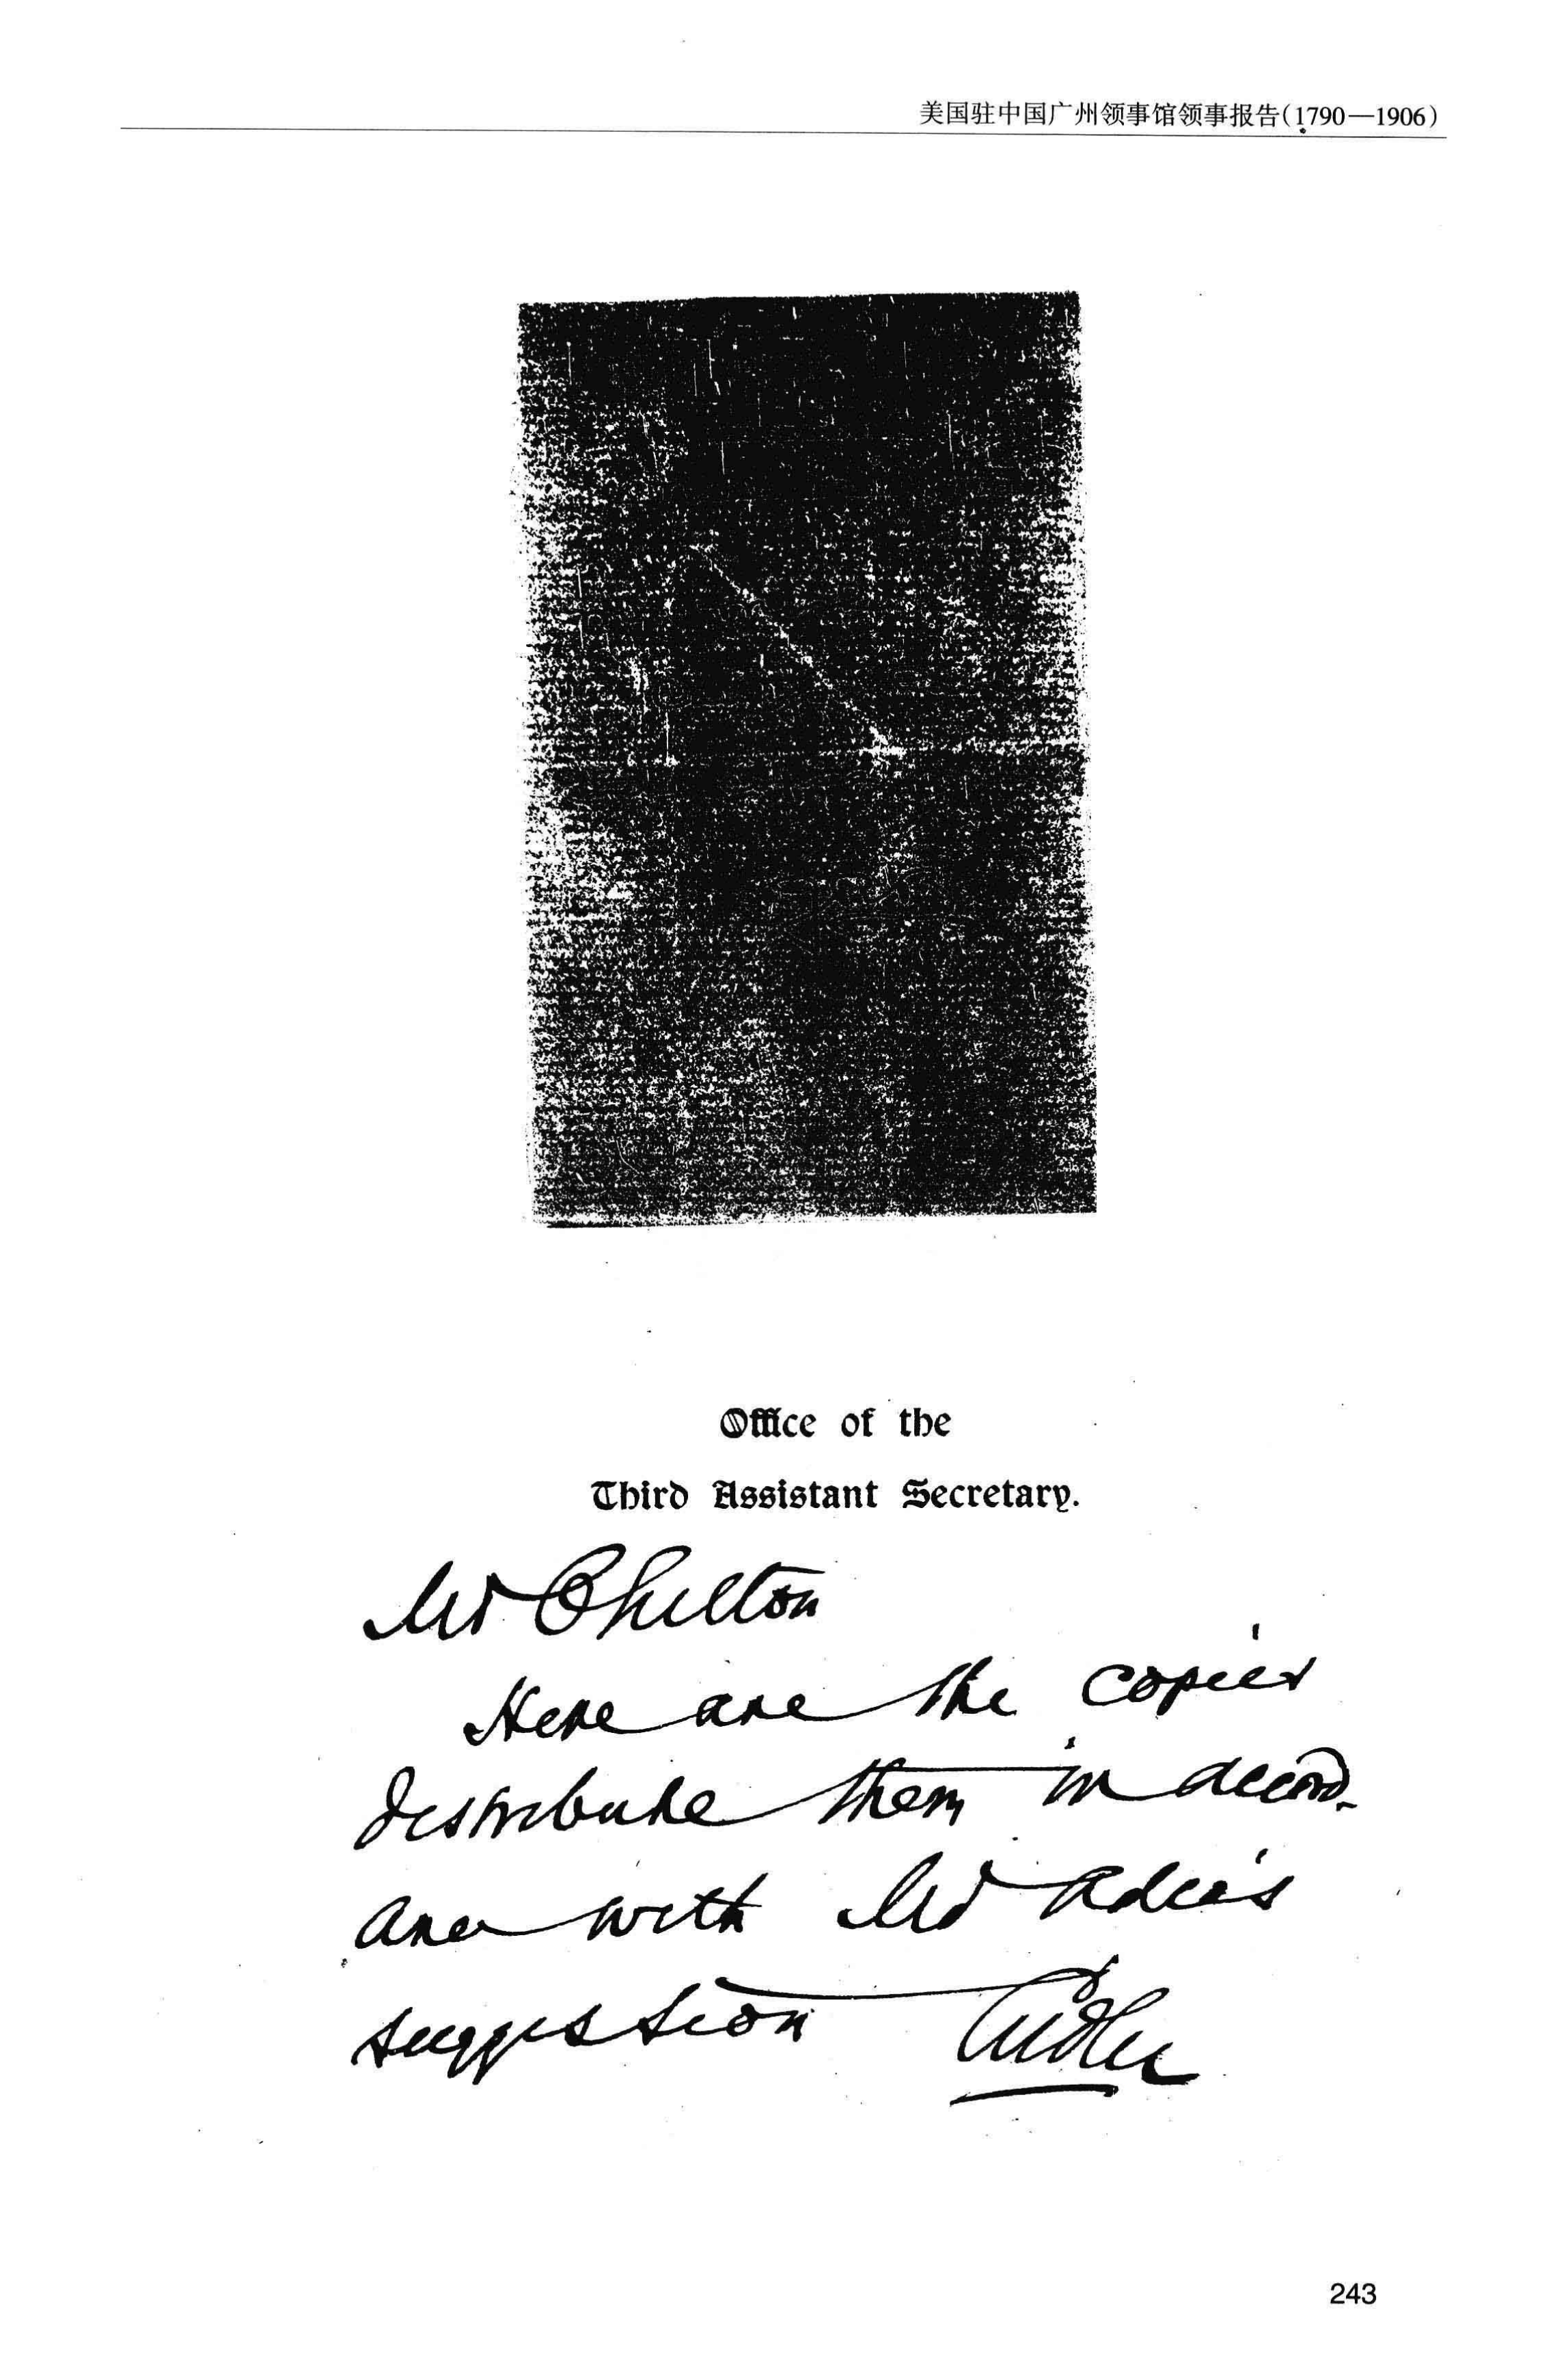 美国驻中国广州领事馆领事报告(1790—1906)
Office of the
Third Assistant Secretary.
Mr Chilton
Here are the copies
distribute them in accord-
ance with Mr Adee's
suggestion Cridler
243